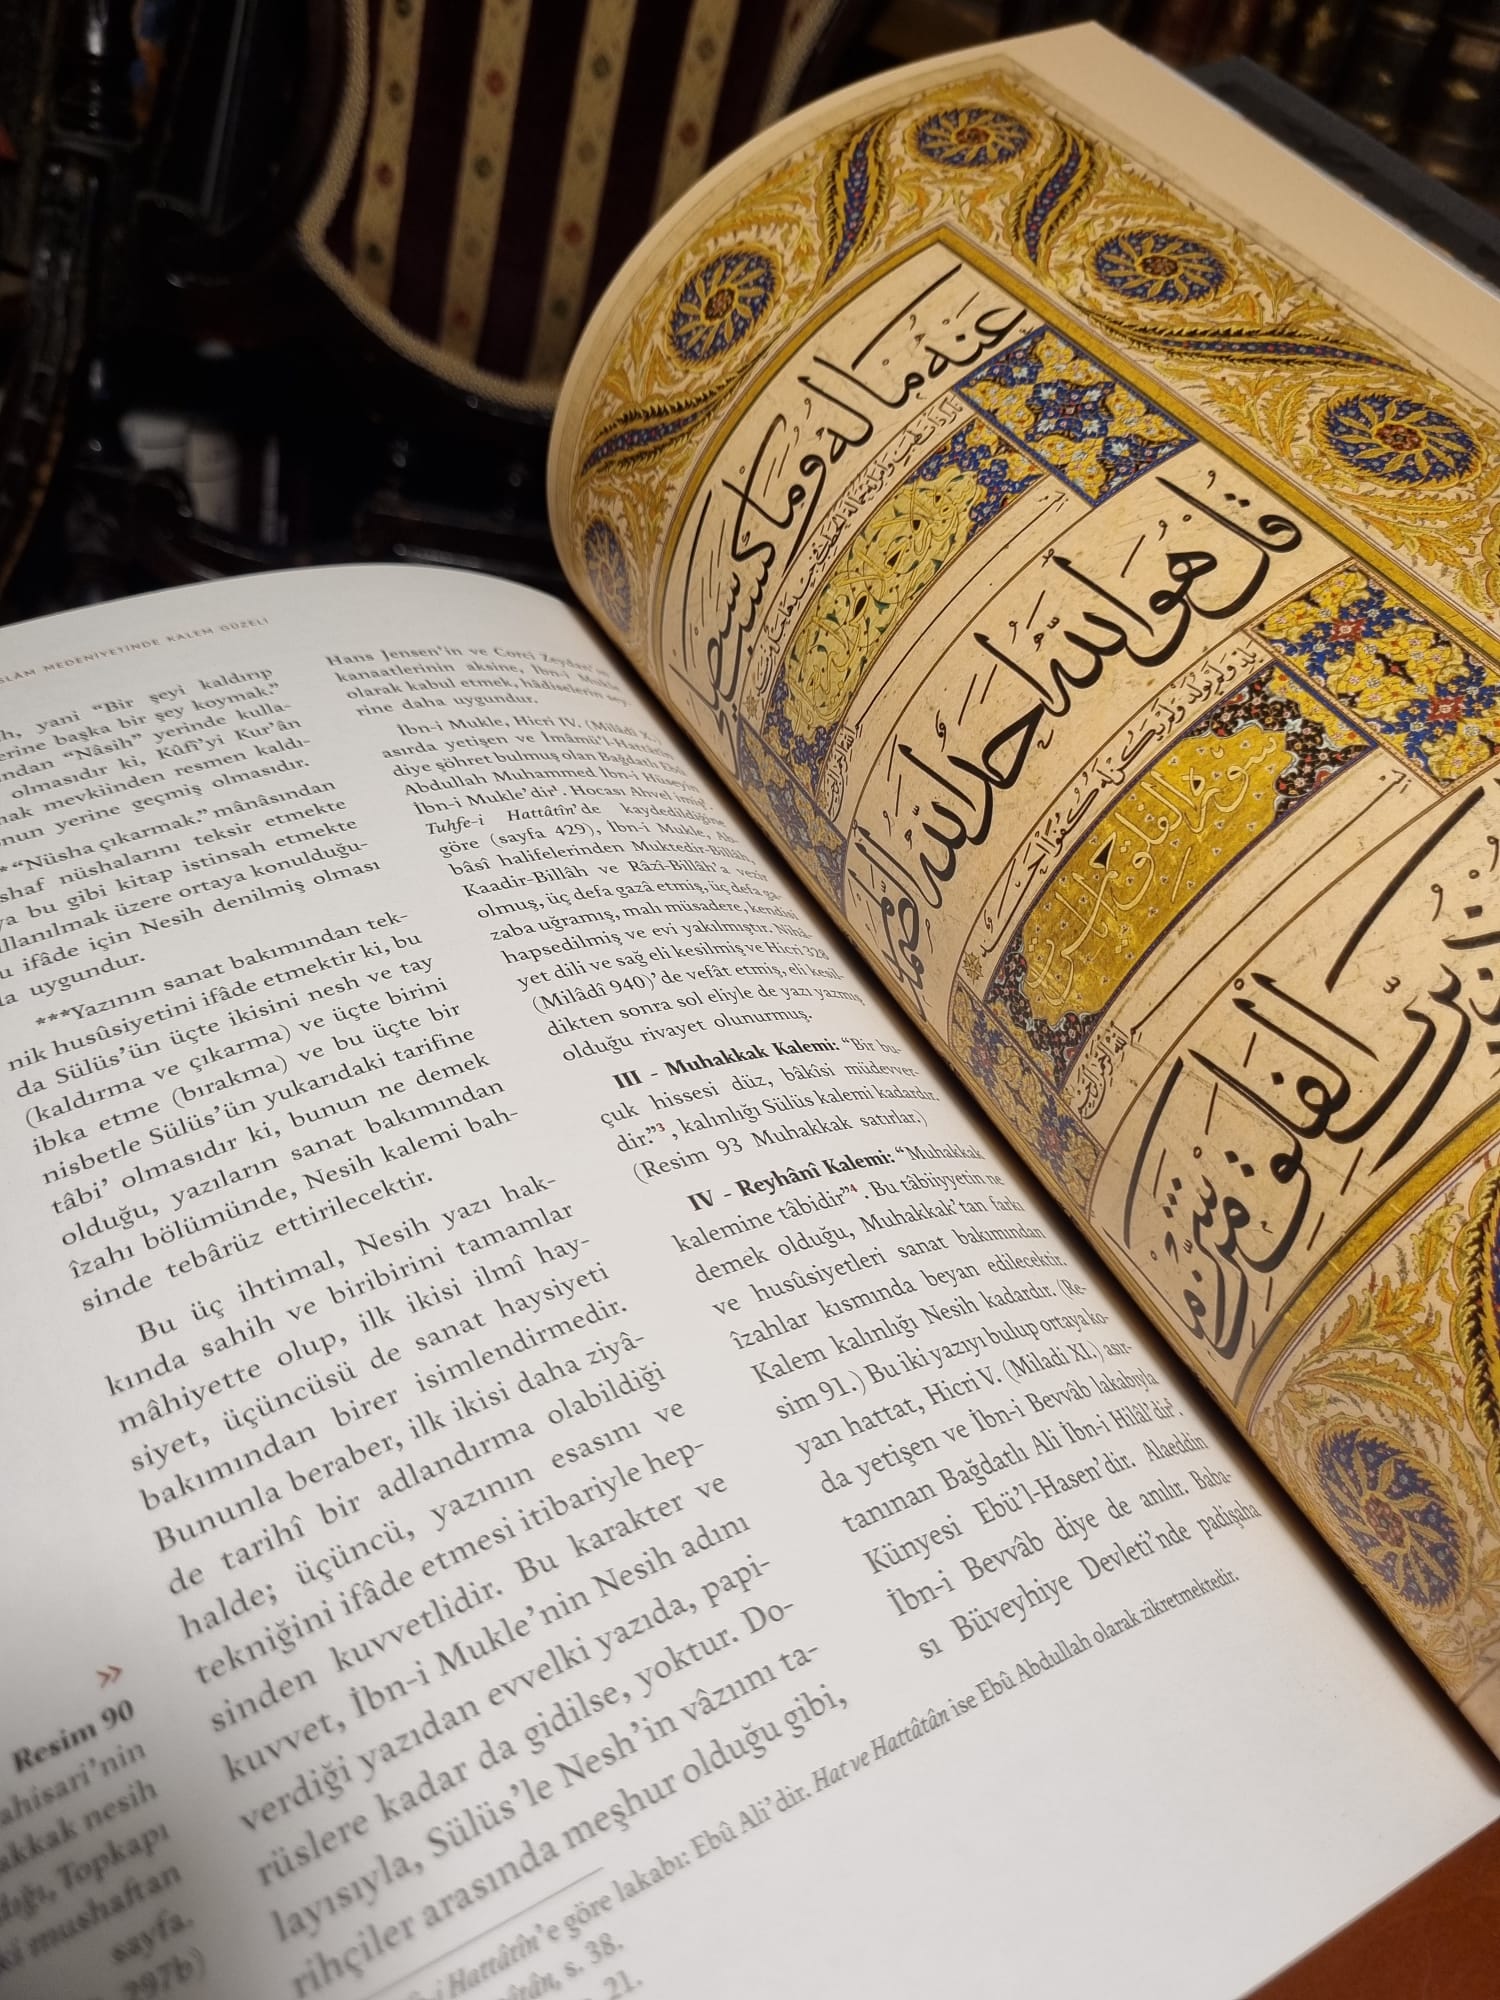 İSLÂM MEDENİYETİNDE KALEM GÜZELİ
yani “Bir şeyi kaldırıp
yerine başka bir şey koymak.”
“Nâsih” yerinde kulla-
olmasıdır ki, Kûfî’yi Kur’ân
mevkiinden resmen kaldı-
yerine geçmiş olmasıdır.
“Nüsha çıkarmak.” mânâsından
nüshalarını teksir etmekte
bu gibi kitap istinsah etmekte
kullanılmak üzere ortaya konulduğu-
ifâde için Nesih denilmiş olması
da uygundur.
***Yazının sanat bakımından tek-
nik husûsiyetini ifâde etmektir ki, bu
da Sülüs’ün üçte ikisini nesh ve tay
(kaldırma ve çıkarma) ve üçte birini
ibka etme (bırakma) ve bu üçte bir
nisbetle Sülüs’ün yukarıdaki tarifine
tâbi’ olmasıdır ki, bunun ne demek
olduğu, yazıların sanat bakımından
îzahı bölümünde, Nesih kalemi bah-
sinde tebârüz ettirilecektir.
Bu üç ihtimal, Nesih yazı hak-
kında sahih ve biribirini tamamlar
mâhiyette olup, ilk ikisi ilmî hay-
siyet, üçüncüsü de sanat haysiyeti
bakımından birer isimlendirmedir.
Bununla beraber, ilk ikisi daha ziyâ-
de tarihî bir adlandırma olabildiği
halde; üçüncü, yazının esasını ve
tekniğini ifâde etmesi itibariyle hep-
sinden kuvvetlidir. Bu karakter ve
kuvvet, İbn-i Mukle’nin Nesih adını
verdiği yazıdan evvelki yazıda, papi-
rüslere kadar da gidilse, yoktur. Do-
layısıyla, Sülüs’le Nesh’in vâzıını ta-
rihçiler arasında meşhur olduğu gibi,
Hans Jensen’in ve Corci Zeydan’ın
kanaatlerinin aksine, İbn-i Mukle
olarak kabul etmek, hâdiselerin sey-
rine daha uygundur.
İbn-i Mukle, Hicri IV. (Milâdî X.)
asırda yetişen ve İmâmü’l-Hattâtîn
diye şöhret bulmuş olan Bağdatlı Ebû
Abdullah Muhammed İbn-i Hüseyin
İbn-i Mukle’dir¹. Hocası Ahvel imiş².
Tuhfe-i Hattâtîn’de kaydedildiğine
göre (sayfa 429), İbn-i Mukle, Ab-
bâsî halifelerinden Muktedir-Billâh,
Kaadir-Billâh ve Râzî-Billâh’a vezir
olmuş, üç defa gazâ etmiş, üç defa ga-
zaba uğramış, malı müsadere, kendisi
hapsedilmiş ve evi yakılmıştır. Nihâ-
yet dili ve sağ eli kesilmiş ve Hicri 328
(Milâdî 940)’de vefât etmiş, eli kesil-
dikten sonra sol eliyle de yazı yazmış
olduğu rivayet olunurmuş.
III - Muhakkak Kalemi: “Bir bu-
çuk hissesi düz, bâkîsi müdevver-
dir.”³, kalınlığı Sülüs kalemi kadardır.
(Resim 93 Muhakkak satırlar.)
IV - Reyhânî Kalemi: “Muhakkak
kalemine tâbidir”⁴. Bu tâbiiyyetin ne
demek olduğu, Muhakkak’tan farkı
ve husûsiyetleri sanat bakımından
îzahlar kısmında beyan edilecektir.
Kalem kalınlığı Nesih kadardır. (Re-
sim 91.) Bu iki yazıyı bulup ortaya ko-
yan hattat, Hicri V. (Miladi XI.) asır-
da yetişen ve İbn-i Bevvâb lakabıyla
tanınan Bağdatlı Ali İbn-i Hilâl’dir⁵.
Künyesi Ebü’l-Hasen’dir. Alaeddin
İbn-i Bevvâb diye de anılır. Baba-
sı Büveyhiye Devleti’nde padişaha
»
Resim 90
Karahisari’nin
nesih
Topkapı
mushaftan
sayfa.
297b)
Hattâtîn’e göre lakabı: Ebû Ali’dir. Hat ve Hattâtân ise Ebû Abdullah olarak zikretmektedir.
s. 38.
21.
عنه ماله وما كسب سيصلى
قل هو الله احد الله الصمد
لم يلد ولم يولد ولم يكن له كفوا احد
سورة الفلق
بسم الله الرحمن الرحيم
برب الفلق من شر